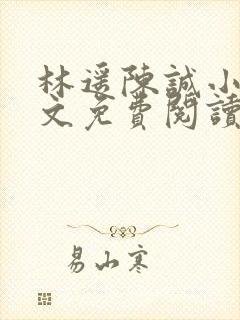 林遥陳誠小
文免費閱讀
易山寒